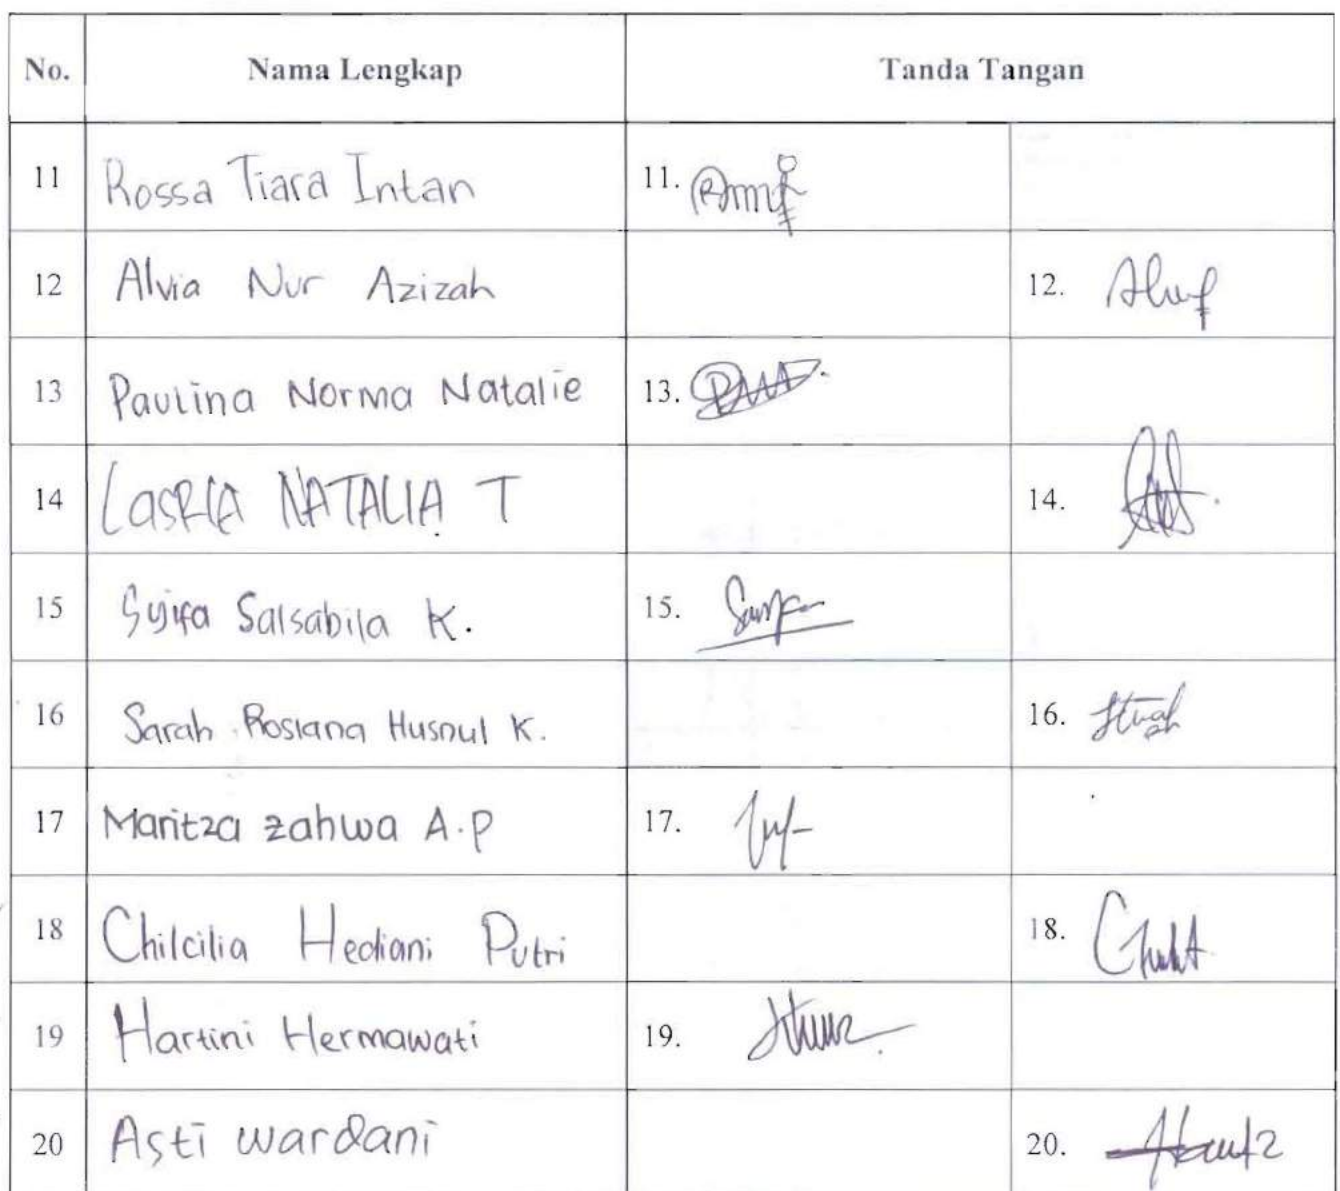 No. Nama Lengkap Tanda Tangan
11 Rossa Tiara Intan 11.
12 Alvia Nur Azizah 12.
13 Paulina Norma Natalie 13.
14 LasRIA NATALIA T 14.
15 Syifa Salsabila K. 15.
16 Sarah Rosiana Husnul K. 16.
17 Maritza zahwa A.P 17.
18 Chilcilia Hediani Putri 18.
19 Hartini Hermawati 19.
20 Asti wardani 20.